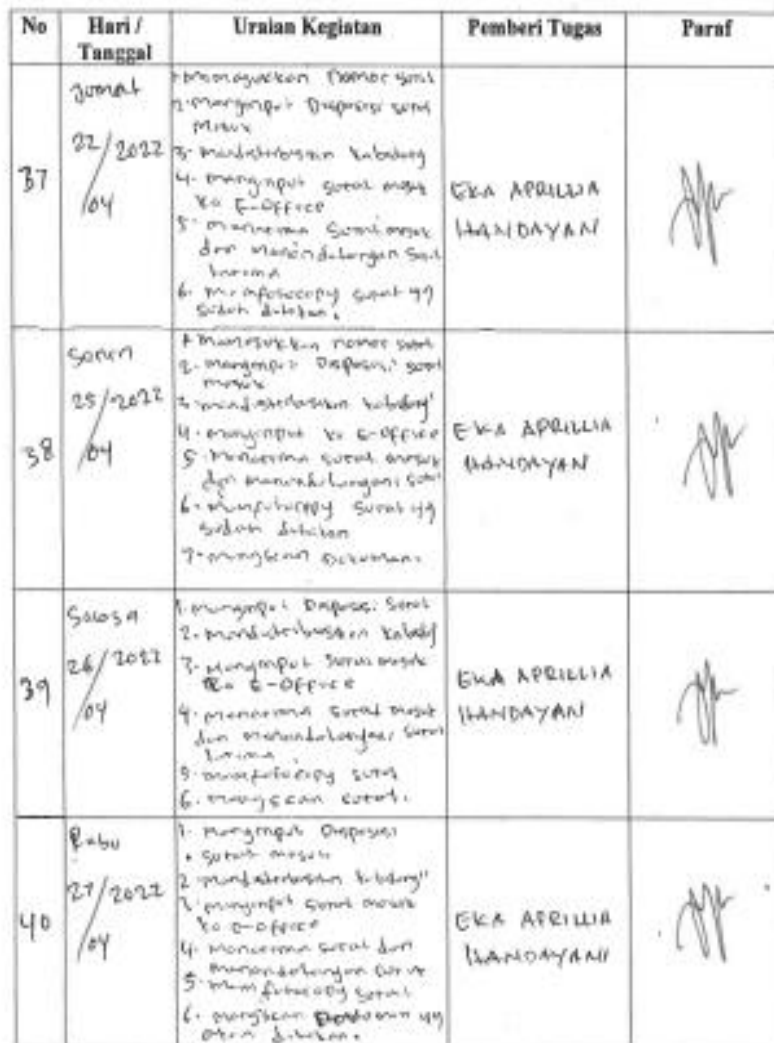 No Hari / Tanggal Uraian Kegiatan Pemberi Tugas Paraf
37
Jomat
22/2022
/04
1. Memasukkan Nomor surat
2. Menginput Disposisi surat
Masuk
3. Mendistribusikan kabidang
4. Menginput surat masuk
Ke E-OFFice
5. Menerima Surat masuk
dan Menandatangan Surat
terima
6. Memfotocopy surat yg
sudah ditekan.
EKA APRILLIA
HANDAYAN
38
Senin
25/2022
/04
1. Memasukkan nomor surat
2. Menginput Disposisi surat
masuk
3. Mendistribusikan kabidang"
4. Menginput ke E-OFFice
5. Menerima surat masuk
dan menandatangani surat
6. Memfotocopy surat yg
sudah ditekan
7. Mengscan Dokumen.
EKA APRILLIA
HANDAYAN
39
Selasa
26/2022
/04
1. Menginput Disposisi Surat
2. Mendistribusikan kabid
3. Menginput Surat masuk
Ke E-OFFice
4. Menerima surat masuk
dan menandatangani surat
terima
5. Memfotocopy surat
6. Mengscan surat.
EKA APRILLIA
HANDAYAN
40
Rabu
27/2022
/04
1. Menginput Disposisi
surat masuk
2. Mendistribusikan kebidang"
3. Menginput surat masuk
ke E-OFFice
4. Menerima surat dan
menandatangan surat
5. Memfotocopy surat
6. Mengscan yg
ditekan.
EKA APRILLIA
HANDAYANI